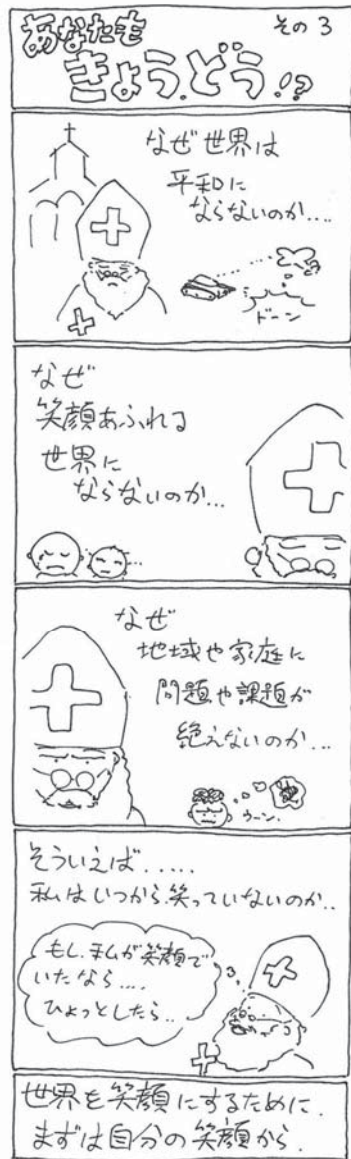 その3
あなたも
きょう.どう!?
なぜ世界は
平和に
ならないのか....
ドーン
なぜ
笑顔あふれる
世界に
ならないのか...
なぜ
地域や家庭に
問題や課題が
絶えないのか...
ウーン.
そういえば.....
私はいつから.笑っていないのか..
もし.私が笑顔で
いたなら....
ひょっとしたら..
世界を笑顔にするために.
まずは自分の笑顔から.